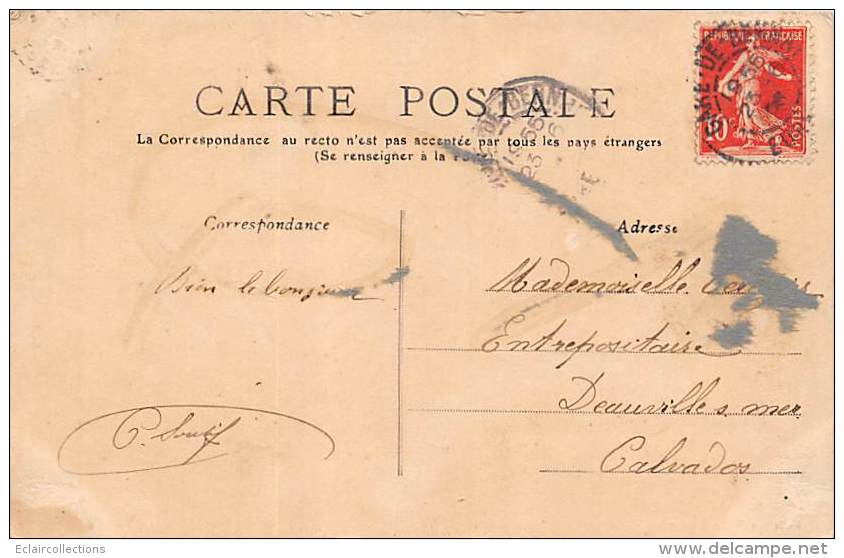 CARTE POSTALE
La Correspondance au recto n'est pas acceptée par tous les pays étrangers
(Se renseigner à la Poste)
REPUBLIQUE FRANÇAISE
10
POSTES
GARE DE
Correspondance
Adresse
Bien le bonjour
Mademoiselle
Entrepositaire
Deauville s mer
Calvados
Eclaircollections
delcampe.net